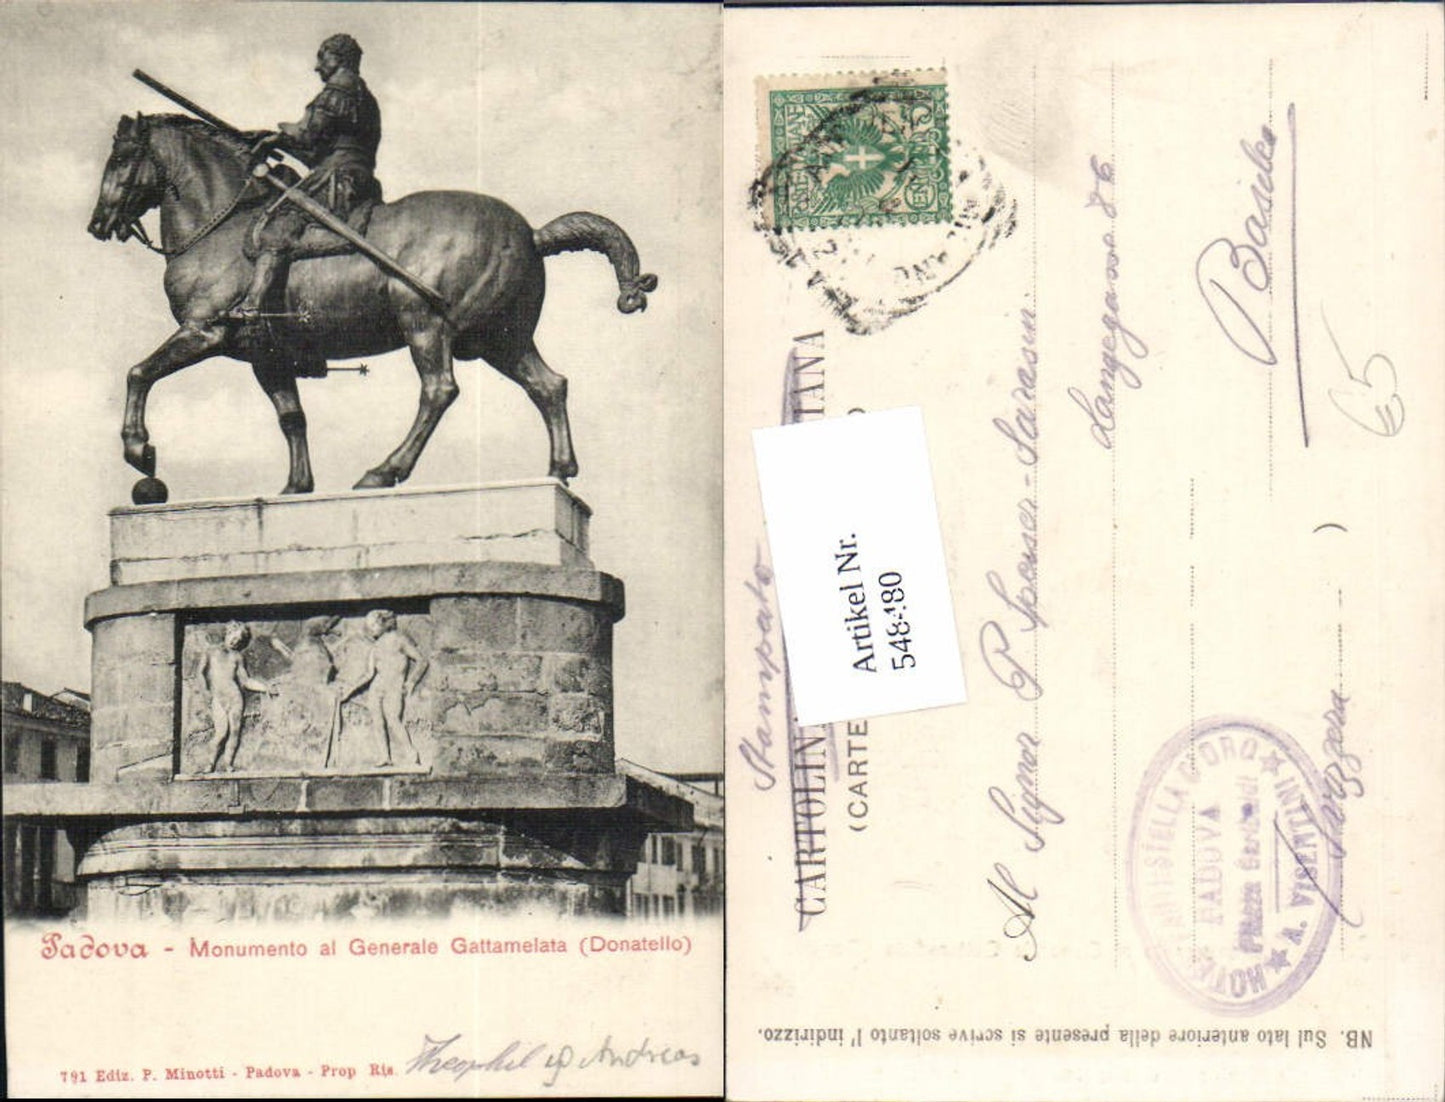 Padova - Monumento al Generale Gattamelata (Donatello)
791 Ediz. P. Minotti - Padova - Prop Ris.
Theophil & Andreas
Stampato
CARTOLIN IANA
(CARTE
Artikel Nr.
548480
Al Signor P Speiser-Sarasin
Langegasse 86
Basilea
(Svizzera)
€5
STELLA D'ORO
PADOVA
Piazza Garibaldi
A. VISENTINI
HOTEL
NB. Sul lato anteriore della presente si scrive soltanto l'indirizzo.